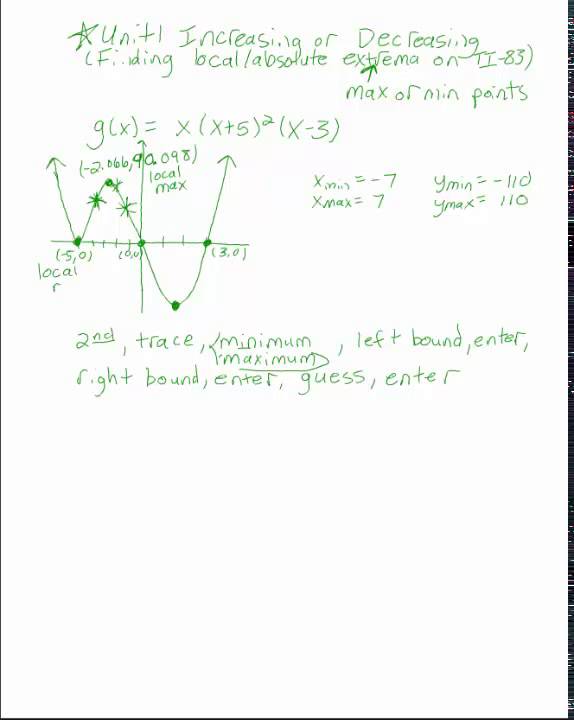 ☆ Unit 1 Increasing or Decreasing
(Finding local/absolute extrema on TI-83)
max or min points
g(x) = x(x+5)²(x-3)
(-2.066, 90.098)
local
max
xmin = -7 ymin = -110
xmax = 7 ymax = 110
(-5,0) (0,0) (3,0)
local
r
2nd, trace, minimum, left bound, enter,
maximum
right bound, enter, guess, enter